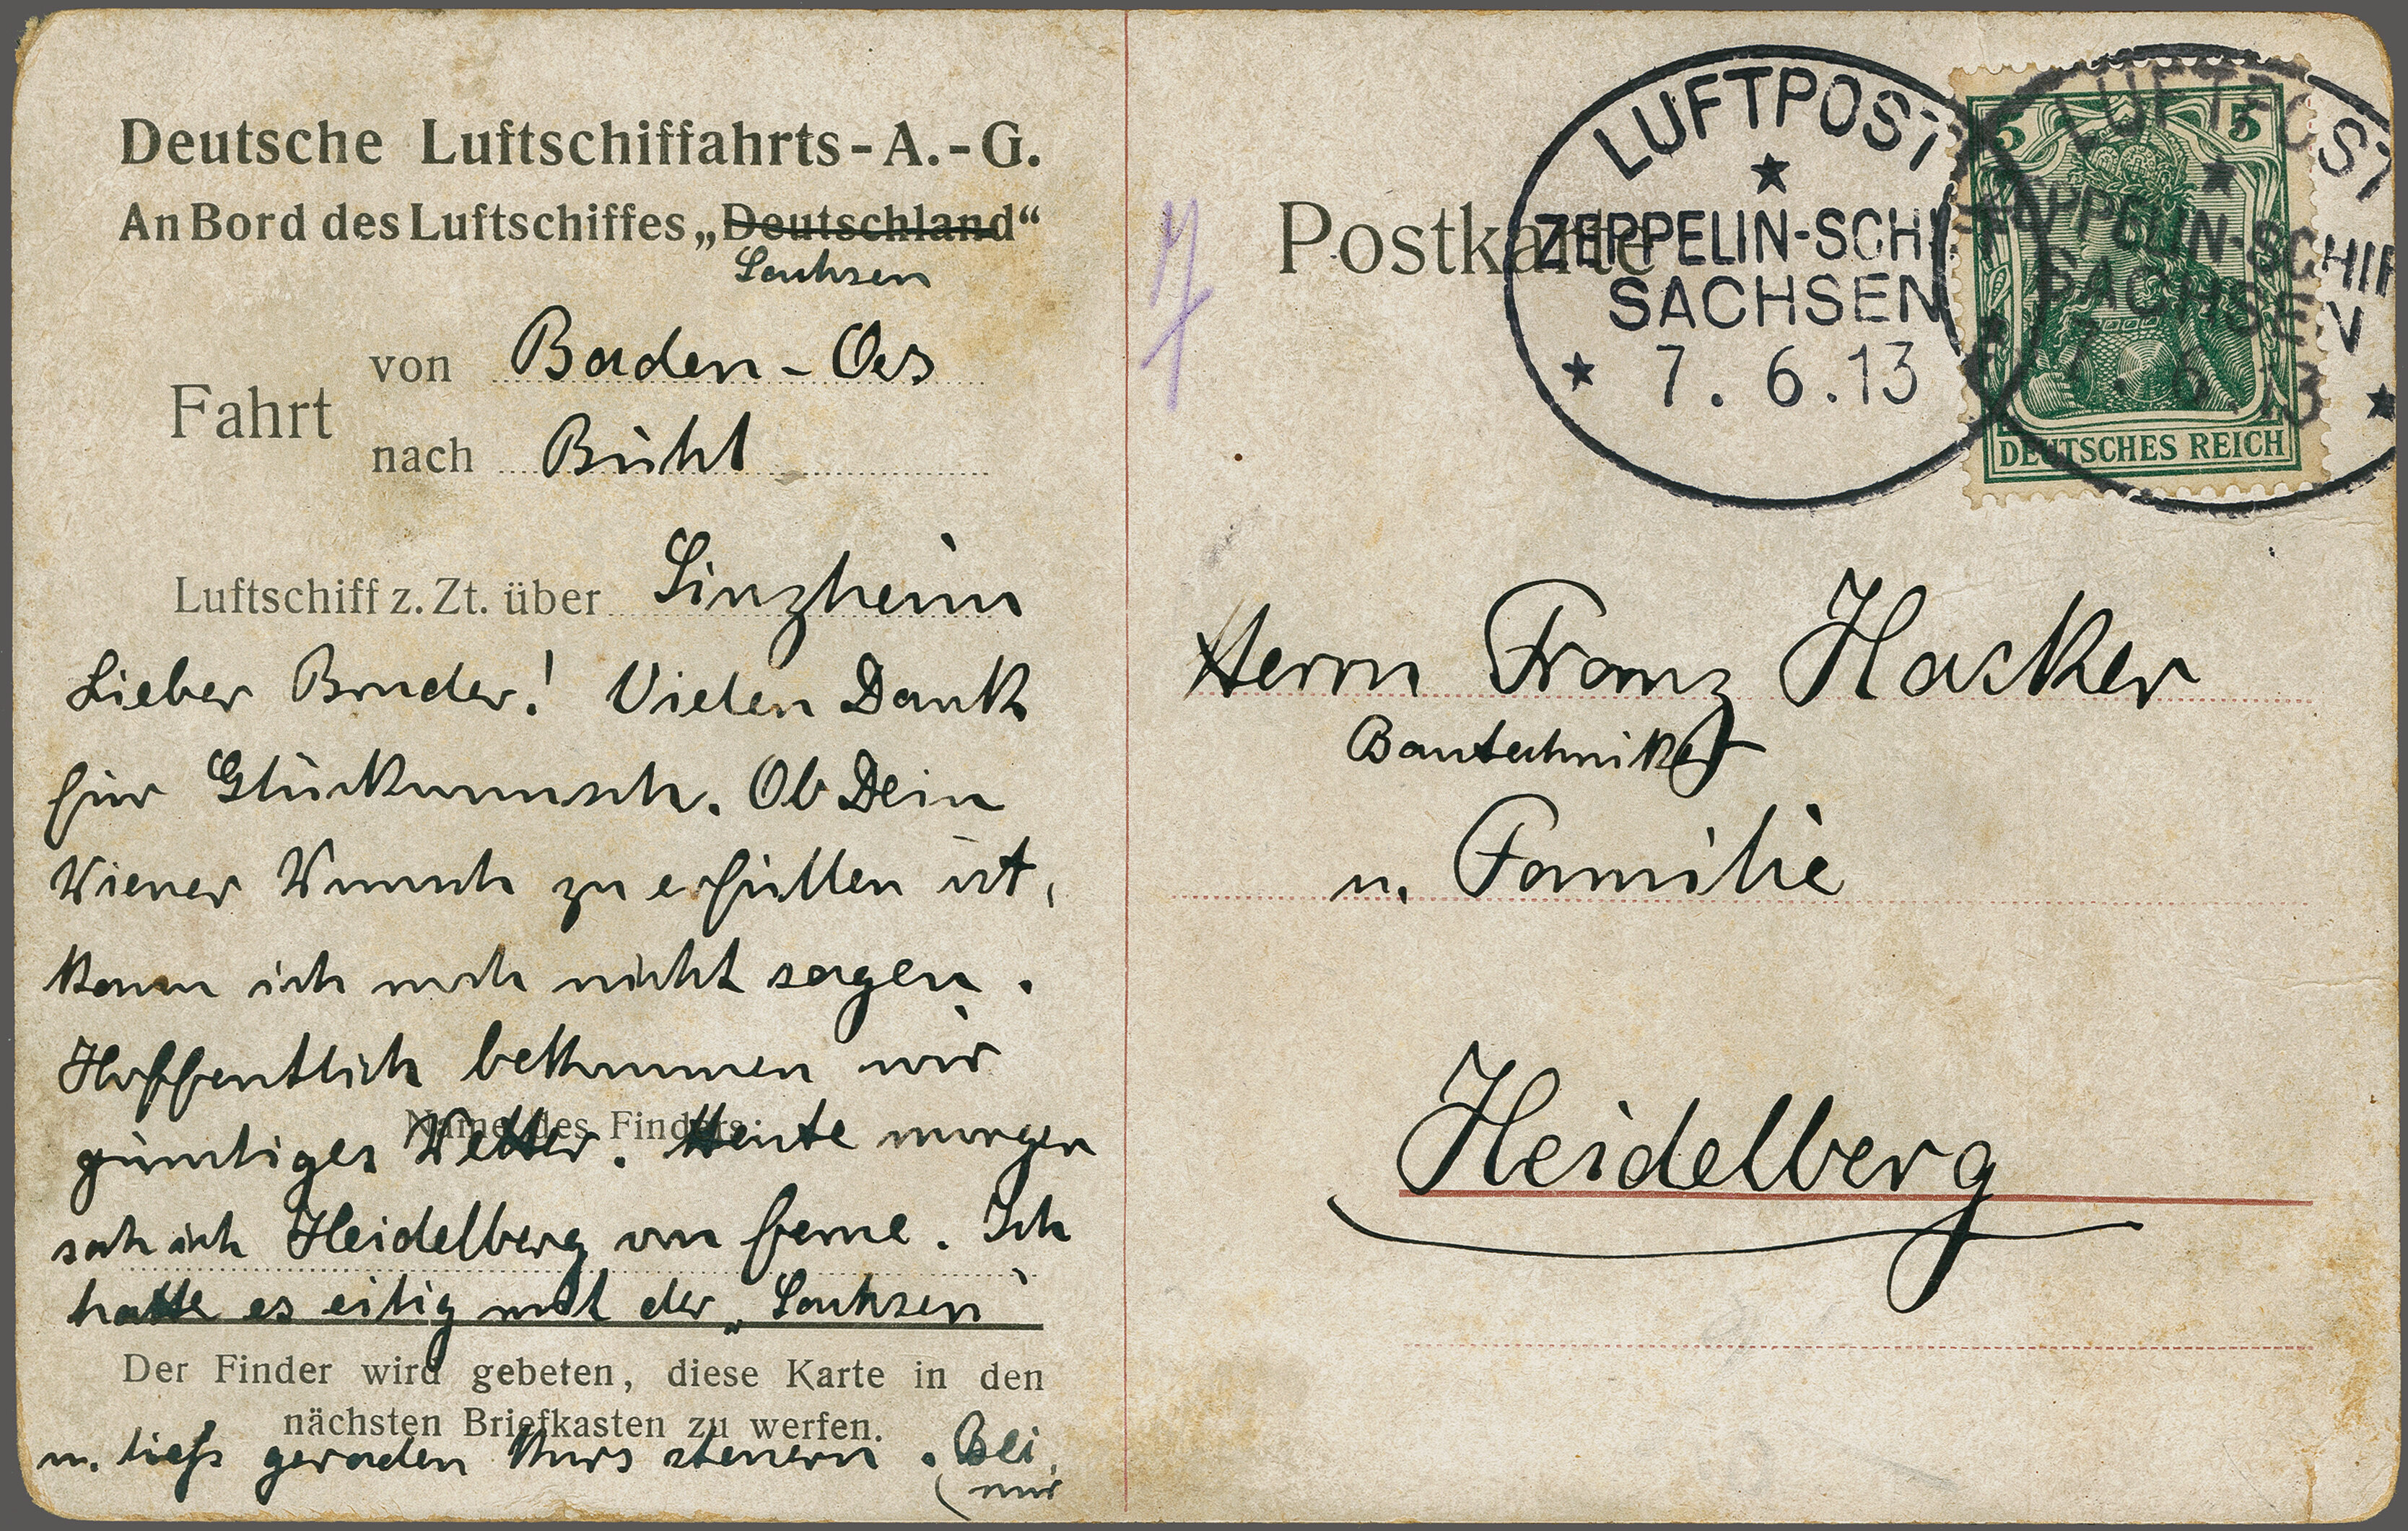 Deutsche Luftschiffahrts-A.-G.
An Bord des Luftschiffes „Deutschland“
Sachsen
Fahrt
von Baden-Oos
nach Bühl
Luftschiff z. Zt. über Sinzheim
Lieber Bruder! Vielen Dank
für Glückwunsch. Ob Dein
Wiener Wunsch zu erfüllen ist,
kann ich noch nicht sagen.
Hoffentlich bekommen wir
Name des Finders:
günstiges Wetter. Heute morgen
sah ich Heidelberg von ferne. Ich
hatte es eilig mit der „Sachsen“
Der Finder wird gebeten, diese Karte in den
nächsten Briefkasten zu werfen.
u. ließ geraden Kurs steuern. Bei
mir
Postkarte
LUFTPOST
ZEPPELIN-SCHI
SACHSEN
7. 6. 13
LUFTPOST
ZEPPELIN-SCHIF
SACHSEN
7. 6. 13
5 5
DEUTSCHES REICH
Herrn Franz Hacker
Bautechniker
u. Familie
Heidelberg